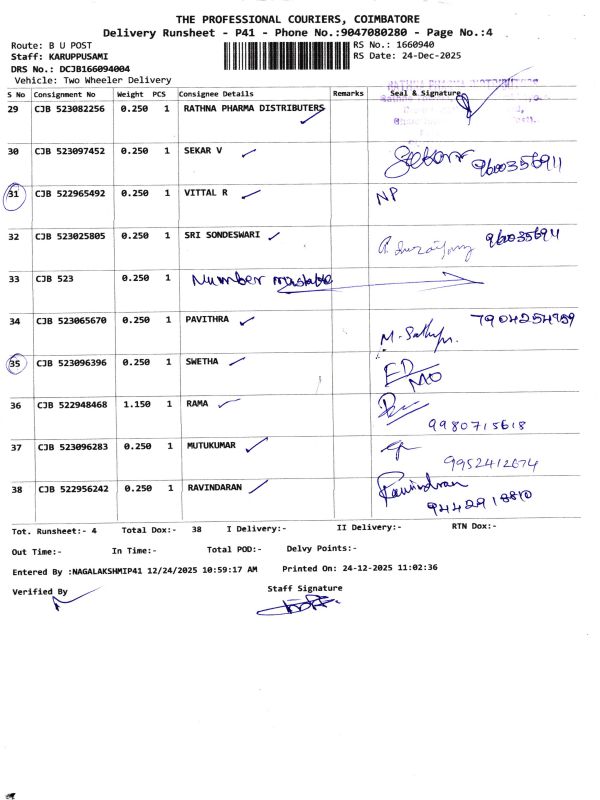 THE PROFESSIONAL COURIERS, COIMBATORE
Delivery Runsheet - P41 - Phone No.:9047080280 - Page No.:4
Route: B U POST RS No.: 1660940
Staff: KARUPPUSAMI RS Date: 24-Dec-2025
DRS No.: DCJB166094004
Vehicle: Two Wheeler Delivery
S No Consignment No Weight PCS Consignee Details Remarks Seal & Signature
RATHNA PHARMA DISTRIBUTORS
29 CJB 523082256 0.250 1 RATHNA PHARMA DISTRIBUTERS
30 CJB 523097452 0.250 1 SEKAR V Sekar 9600356911
31 CJB 522965492 0.250 1 VITTAL R NP
32 CJB 523025805 0.250 1 SRI SONDESWARI
33 CJB 523 0.250 1 Number mistake
34 CJB 523065670 0.250 1 PAVITHRA 7904254989
35 CJB 523096396 0.250 1 SWETHA ED
MO
36 CJB 522948468 1.150 1 RAMA
9980715618
37 CJB 523096283 0.250 1 MUTUKUMAR
9952412674
38 CJB 522956242 0.250 1 RAVINDARAN Ravindran
9442918810
Tot. Runsheet:- 4 Total Dox:- 38 I Delivery:- II Delivery:- RTN Dox:-
Out Time:- In Time:- Total POD:- Delvy Points:-
Entered By :NAGALAKSHMIP41 12/24/2025 10:59:17 AM Printed On: 24-12-2025 11:02:36
Verified By Staff Signature